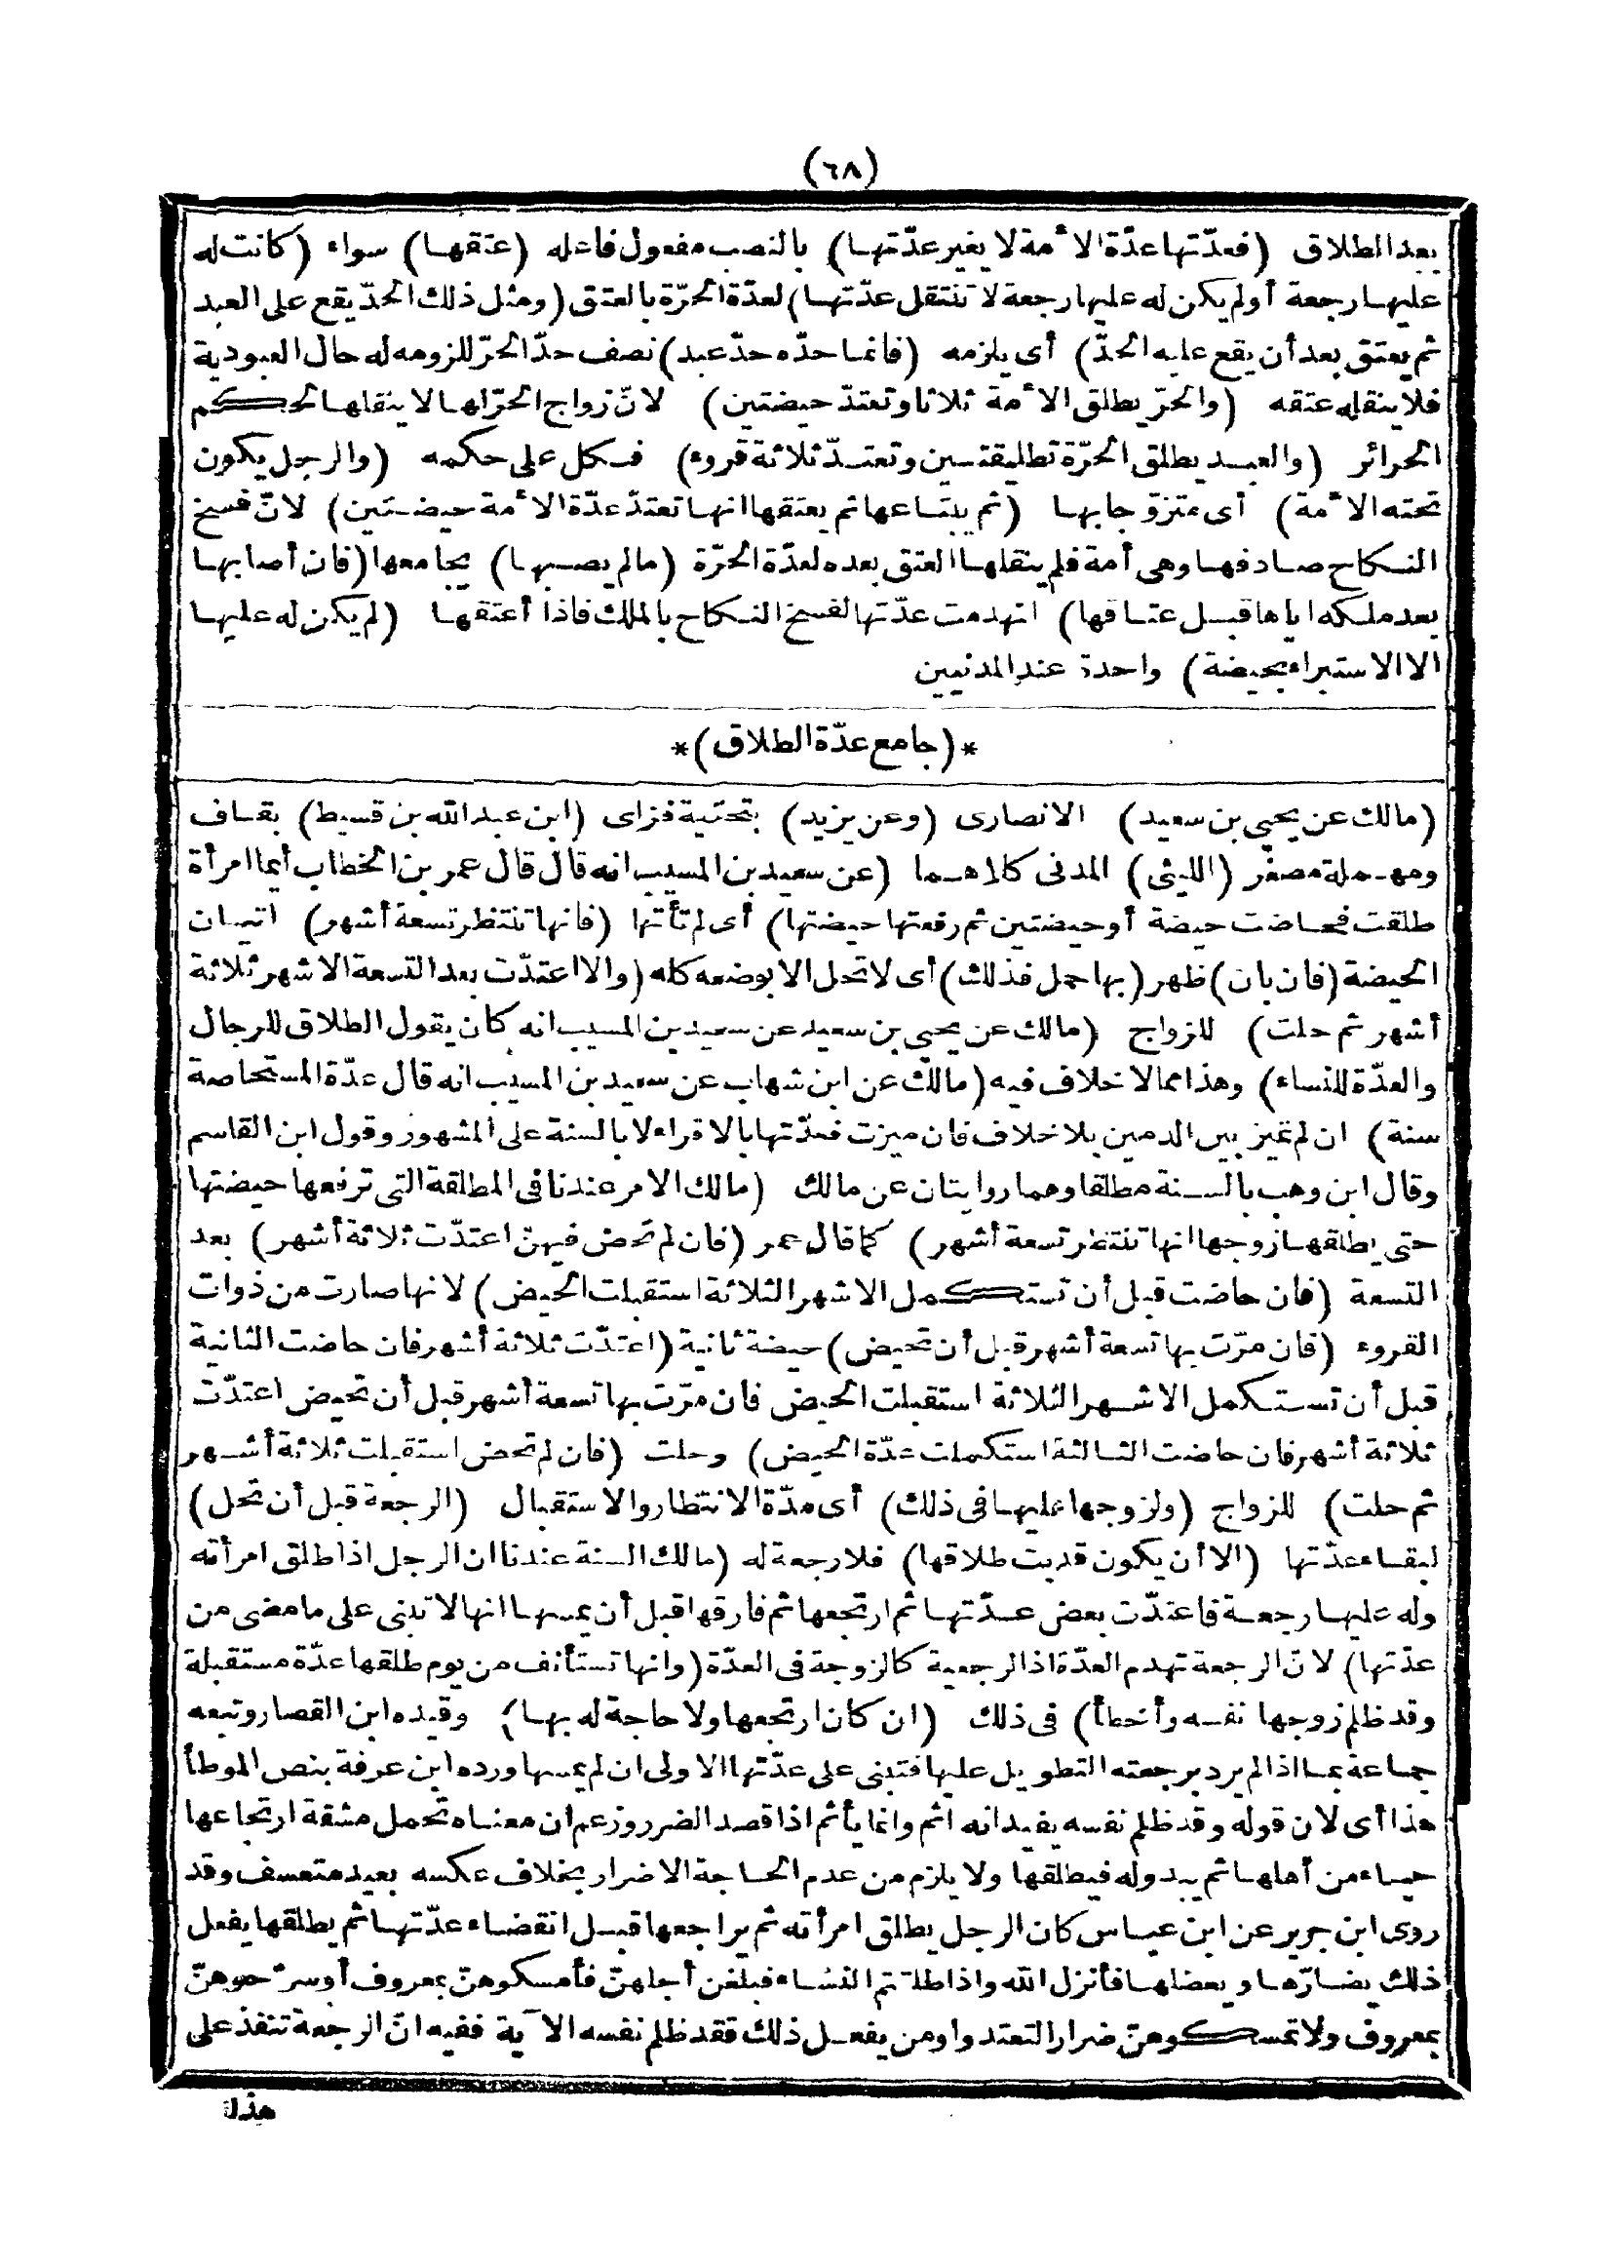 (٦٨)
بعد الطلاق (فعدّتها عدّة الأمة لا يغير عدّتها) بالنصب مفعول فاعله (عتقها) سواء (كانت له
عليها رجعة أو لم يكن له عليها رجعة لا تنتقل عدّتها) لعدّة الحرّة بالعتق (ومثل ذلك الحدّ يقع على العبد
ثم يعتق بعد أن يقع عليه الحدّ) أى يلزمه (فانما حدّه حدّ عبد) نصف حدّ الحرّ للزومه له حال العبودية
فلا ينقله عتقه (والحرّ يطلق الأمة ثلاثا وتعتدّ حيضتين) لانّ زواج الحرّ لها لا ينقلها لحكم
الحرائر (والعبد يطلق الحرّة تطليقتين وتعتدّ ثلاثة قروء) فكل على حكمه (والرجل يكون
تحته الأمة) أى متزوّجا بها (ثم يبتاعها ثم يعتقها انها تعتدّ عدّة الأمة حيضتين) لانّ فسخ
النكاح صادفها وهى أمة فلم ينقلها العتق بعده لعدّة الحرّة (ما لم يصبها) يجامعها (فان أصابها
بعد ملكه اياها قبل عتاقها) انهدمت عدّتها لفسخ النكاح بالملك فاذا أعتقها (لم يكن له عليها
الا الاستبراء بحيضة) واحدة عند المدنيين
*(جامع عدّة الطلاق)*
(مالك عن يحيى بن سعيد) الانصارى (وعن يزيد) بتحتية فزاى (ابن عبد الله بن قسيط) بقاف
ومهملة مصغر (الليثى) المدنى كلاهما (عن سعيد بن المسيب انه قال قال عمر بن الخطاب أيما امرأة
طلقت فحاضت حيضة أو حيضتين ثم رفعتها حيضتها) أى لم تأتها (فانها تنتظر تسعة أشهر) اتيان
الحيضة (فان بان) ظهر (بها حمل فذلك) أى لا تحل الا بوضعه كله (والا اعتدّت بعد التسعة الاشهر ثلاثة
أشهر ثم حلت) للزواج (مالك عن يحيى بن سعيد عن سعيد بن المسيب انه كان يقول الطلاق للرجال
والعدّة للنساء) وهذا مما لا خلاف فيه (مالك عن ابن شهاب عن سعيد بن المسيب انه قال عدّة المستحاضة
سنة) ان لم تميز بين الدمين بلا خلاف فان ميزت فعدّتها بالاقراء لا بالسنة على المشهور وقول ابن القاسم
وقال ابن وهب بالسنة مطلقا وهما روايتان عن مالك (مالك الامر عندنا فى المطلقة التى ترفعها حيضتها
حتى يطلقها زوجها انها تنتظر تسعة أشهر) كما قال عمر (فان لم تحض فيهنّ اعتدّت ثلاثة أشهر) بعد
التسعة (فان حاضت قبل أن تستكمل الاشهر الثلاثة استقبلت الحيض) لانها صارت من ذوات
القروء (فان مرّت بها تسعة أشهر قبل أن تحيض) حيضة ثانية (اعتدّت ثلاثة أشهر فان حاضت الثانية
قبل أن تستكمل الاشهر الثلاثة استقبلت الحيض فان مرّت بها تسعة أشهر قبل أن تحيض اعتدّت
ثلاثة أشهر فان حاضت الثالثة استكملت عدّة الحيض) وحلت (فان لم تحض استقبلت ثلاثة أشهر
ثم حلت) للزواج (ولزوجها عليها فى ذلك) أى مدّة الانتظار والاستقبال (الرجعة قبل أن تحل)
لبقاء عدّتها (الا أن يكون قد بت طلاقها) فلا رجعة له (مالك السنة عندنا ان الرجل اذا طلق امرأته
وله عليها رجعة فاعتدّت بعض عدّتها ثم ارتجعها ثم فارقها قبل أن يمسها انها لا تبنى على ما مضى من
عدّتها) لانّ الرجعة تهدم العدّة اذ الرجعية كالزوجة فى العدّة (وانها تستأنف من يوم طلقها عدّة مستقبلة
وقد ظلم زوجها نفسه وأخطأ) فى ذلك (ان كان ارتجعها ولا حاجة له بها) وقيده ابن القصار وتبعه
جماعة بما اذا لم يرد برجعته التطويل عليها فتبنى على عدّتها الاولى ان لم يمسها ورده ابن عرفة بنص الموطأ
هذا أى لان قوله وقد ظلم نفسه يفيد انه اثم وانما يأثم اذا قصد الضرر وزعم ان معناه تحمل مشقة ارتجاعها
حياء من أهلها ثم يبدو له فيطلقها ولا يلزم من عدم الحاجة الاضرار بخلاف عكسه بعيد متعسف وقد
روى ابن جرير عن ابن عباس كان الرجل يطلق امرأته ثم يراجعها قبل انقضاء عدّتها ثم يطلقها يفعل
ذلك يضارّها ويعضلها فأنزل الله واذا طلقتم النساء فبلغن أجلهنّ فأمسكوهنّ بمعروف أو سرّحوهنّ
بمعروف ولا تمسكوهنّ ضرارا لتعتدوا ومن يفعل ذلك فقد ظلم نفسه الآية ففيه انّ الرجعة تنفذ على
هذا